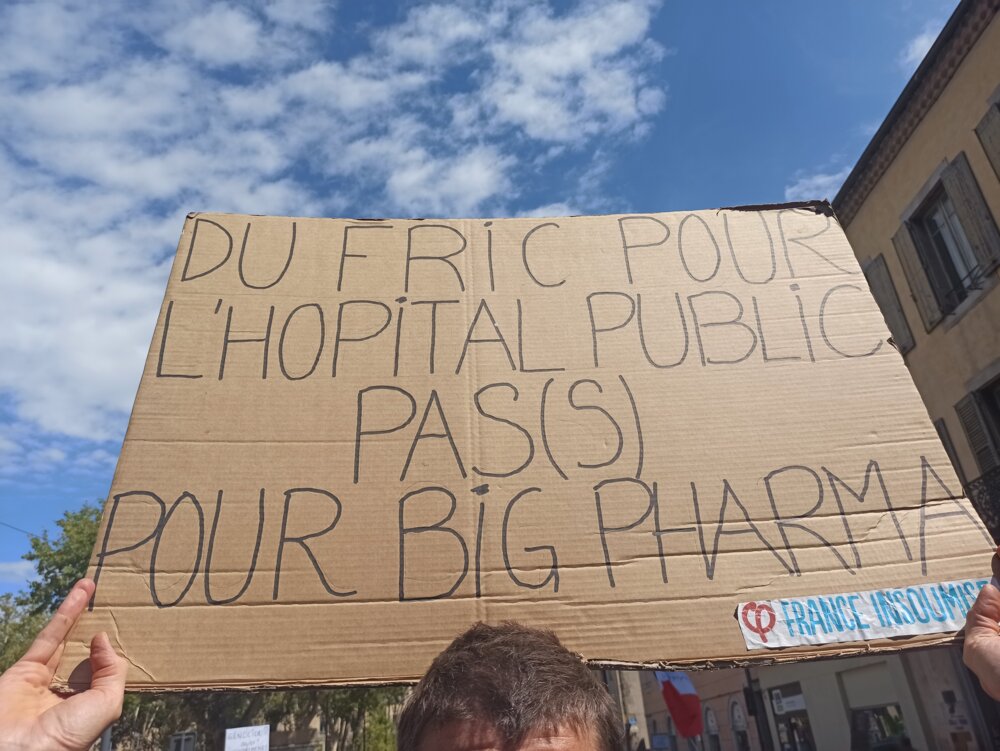 DU FRiC POUR
L'HOPiTAL PUBLiC
PAS(S)
POUR BiG PHARMA
φ FRANCE INSOUMISE